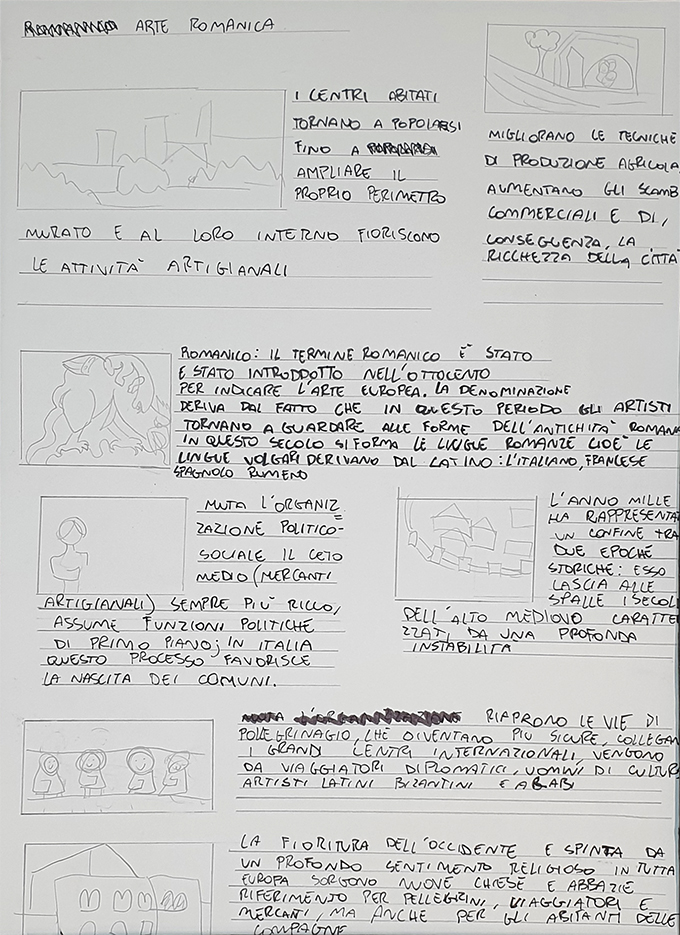 ARTE ROMANICA
I CENTRI ABITATI
TORNANO A POPOLARSI
FINO A
AMPLIARE IL
PROPRIO PERIMETRO
MURATO E AL LORO INTERNO FIORISCONO
LE ATTIVITA' ARTIGIANALI
MIGLIORANO LE TECNICHE
DI PRODUZIONE AGRICOLA,
AUMENTANO GLI SCAMB
COMMERCIALI E DI,
CONSEGUENZA, LA
RICCHEZZA DELLA CITTA'
ROMANICO: IL TERMINE ROMANICO E' STATO
E STATO INTRODDOTTO NELL'OTTOCENTO
PER INDICARE L'ARTE EUROPEA. LA DENOMINAZIONE
DERIVA DAL FATTO CHE IN QUESTO PERIODO GLI ARTISTI
TORNANO A GUARDARE ALLE FORME DELL'ANTICHITA' ROMANA
IN QUESTO SECOLO SI FORMA LE LINGUE ROMANZE CIOE' LE
LINGUE VOLGARI DERIVANO DAL LATINO: L'ITALIANO, FRANCESE
SPAGNOLO RUMENO
MUTA L'ORGANIZ=
ZAZIONE POLITICO-
SOCIALE IL CETO
MEDIO (MERCANTI
ARTIGIANALI) SEMPRE PIU' RICCO,
ASSUME FUNZIONI POLITICHE
DI PRIMO PIANO; IN ITALIA
QUESTO PROCESSO FAVORISCE
LA NASCITA DEI COMUNI.
L'ANNO MILLE
HA RAPPRESENTA
UN CONFINE TRA
DUE EPOCHE
STORICHE: ESSO
LASCIA ALLE
SPALLE I SECOLI
DELL'ALTO MEDIOVO CARATTE
ZZATI, DA UNA PROFONDA
INSTABILITA
RIAPRONO LE VIE DI
PELLEGRINAGIO, CHE DIVENTANO PIU SICURE, COLLEGAN
I GRANDI CENTRI INTERNAZIONALI, VENGONO
DA VIAGGIATORI DIPLOMATICI, UOMINI DI CULTURA
ARTISTI LATINI BIZANTINI E ARABI
LA FIORITURA DELL'OCCIDENTE E SPINTA DA
UN PROFONDO SENTIMENTO RELIGIOSO IN TUTTA
EUROPA SORGONO NUOVE CHIESE E ABBAZIE
RIFERIMENTO PER PELLEGRINI, VIAGGIATORI E
MERCANTI, MA ANCHE PER GLI ABITANTI DELLE
COMPAGNE